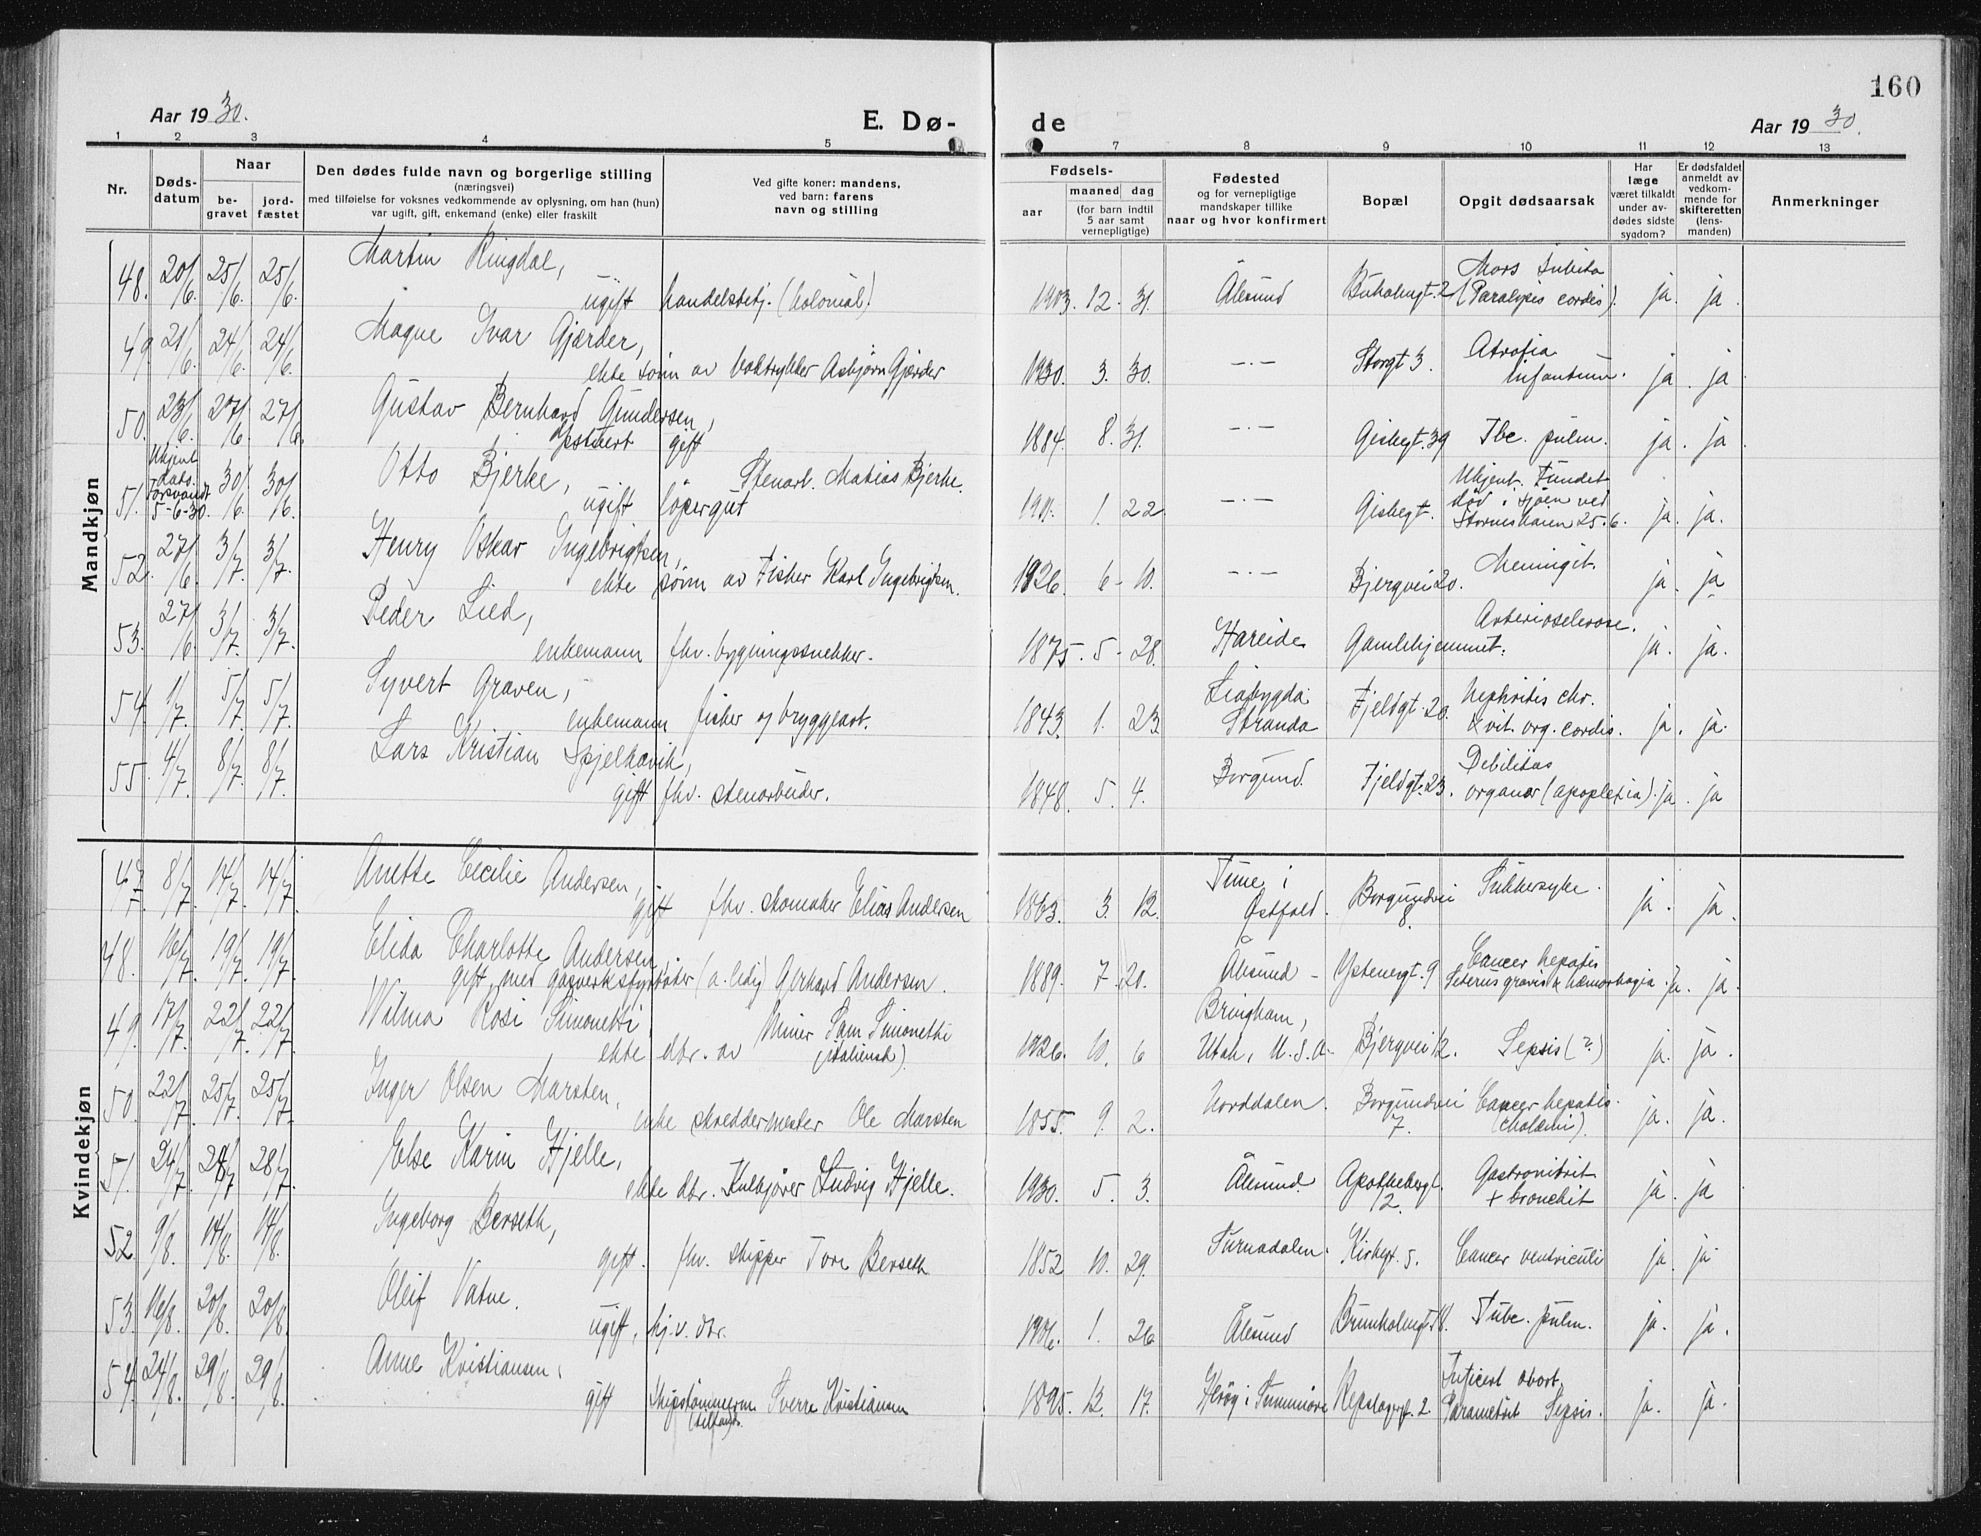 160
Aar 1930. E. Dø- de Aar 1930.
1 2 3 4 5 7 8 9 10 11 12 13
Nr. Døds-datum Naar be-gravet jord-fæstet Den dødes fulde navn og borgerlige stilling (næringsvei) med tilføielse for voksnes vedkommende av oplysning, om han (hun) var ugift, gift, enkemand (enke) eller fraskilt Ved gifte koner: mandens, ved barn: farens navn og stilling Fødsels- aar maaned dag (for barn indtil 5 aar samt vernepligtige) Fødested og for vernepligtige mandskaper tillike naar og hvor konfirmert Bopæl Opgit dødsaarsak Har læge været tilkaldt under av-dødes sidste sygdom? Er dødsfaldet anmeldt av vedkom-mende for skifteretten (lens-manden) Anmerkninger
Mandkjøn
48. 20/6. 25/6. 25/6. Martin Ringdal, ugift handelsbetj. (kolonial). 1903. 12. 31. Ålesund Buholmgt. 2 Mors subita (Paralysis cordis). ja. ja.
49. 21/6. 24/6. 24/6. Magne Ivar Gjærder, ekte sønn av boktrykker Asbjørn Gjærder 1930. 3. 30. -.- Storgt 3. Atrofia infantum. ja. ja
50. 23/6. 27/6 27/6. Gustav Bernhard Gundersen, gift 1884. 8. 31. -.- Gishegt. 39 Tbc. pulm. ja. ja
51. Ukjent dato. Forsvandt 5-6-30. 30/6. 30/6. Otto Bjerke, ugift løpergut Stenarb. Matias Bjerke. 1901. 1. 22. -.- Gishegt. Ukjent. Fundet død i sjøen ved 25.6. ja. ja.
52. 27/6 3/7. 3/7. Henry Oskar Ingebrigtsen, ekte sønn av Fisker Karl Ingebrigtsen. 1926. 6 - 10. -.- Bjergvei 20. Meningit. ja. ja
53. 27/6. 3/7. 3/7. Peder Lied, enkemann fhv. bygningssnekker. 1875. 5 - 28. Hareide Gamlehjemmet. Arteriosclerose. ja. ja.
54. 1/7. 5/7. 5/7. Syvert Graven, enkemann fisker og bryggearb. 1843. 1. 23 Liabygda Stranda Fjeldgt. 20. Nephritis chr. & vit. org. cordis. ja. ja.
55. 4/7. 8/7. 8/7. Lars Kristian Spjelkavik, gift fhv. stenarbeider. 1848. 5. 4. Borgund. Fjeldgt. 23. Debilitas organor (apoplexia). ja. ja
Kvindekjøn
47. 8/7. 14/7. 14/7. Anette Cecilie Andersen, gift fhv. skomaker Elias Andersen 1863. 3. 12. Tune i Østfold. Borgundvei 8. Sukkersyke. ja. ja.
48. 16/7. 19/7. 19/7. Elida Charlotte Andersen, gift med gasverksfyrbøter (a. ledig) Gerhard Andersen. 1889. 7. 20. Ålesund - Østenergt. 9 Cancer hepatis Icterus gravis & hæmorhagia. ja. ja.
49. 17/7. 22/7. 22/7. Wilma Rosi Simonetti, ekte dtr. av Miner Sam Simonetti (italiensk). 1926. 10. 6 Bringham, Utah, U.S.A. Bjergvei 12. Sepsis (?) ja. ja.
50. 22/7. 25/7. 25/7. Inger Olsen Marsten, enke skreddermester Ole Marsten 1855. 9. 2. Norddalen. Borgundvei 7. Cancer hepatis. (cholæmi). ja. ja.
51. 24/7. 28/7 28/7. Else Karin Hjelle, ekte dtr. Kulkjører Ludvig Hjelle. 1930. 5. 3. Ålesund. Apothekergt. 12. Gastronitrit + bronchit ja. ja
52. 9/8. 14/8. 14/8. Ingeborg Berseth, gift. fhv. skipper Tore Berseth 1852 10. 29. Surnadalen. Kirkegt. 5. Cancer ventriculi ja. ja.
53. 16/8. 20/8. 20/8. Oleif Vatne. ugift, hj.v. dtr. 1906. 1. 26 Ålesund Brunholmgt. 18. Tubc. pulm. ja. ja.
54. 24/8. 29/8. 29/8. Anne Kristiansen, gift skipstømmerm. Sverre Kristiansen 1895. 12. 17. Herøy i Sunnmøre Repslagergt. 2. Inficert abort. Parametrit Sepsis. ja. ja.